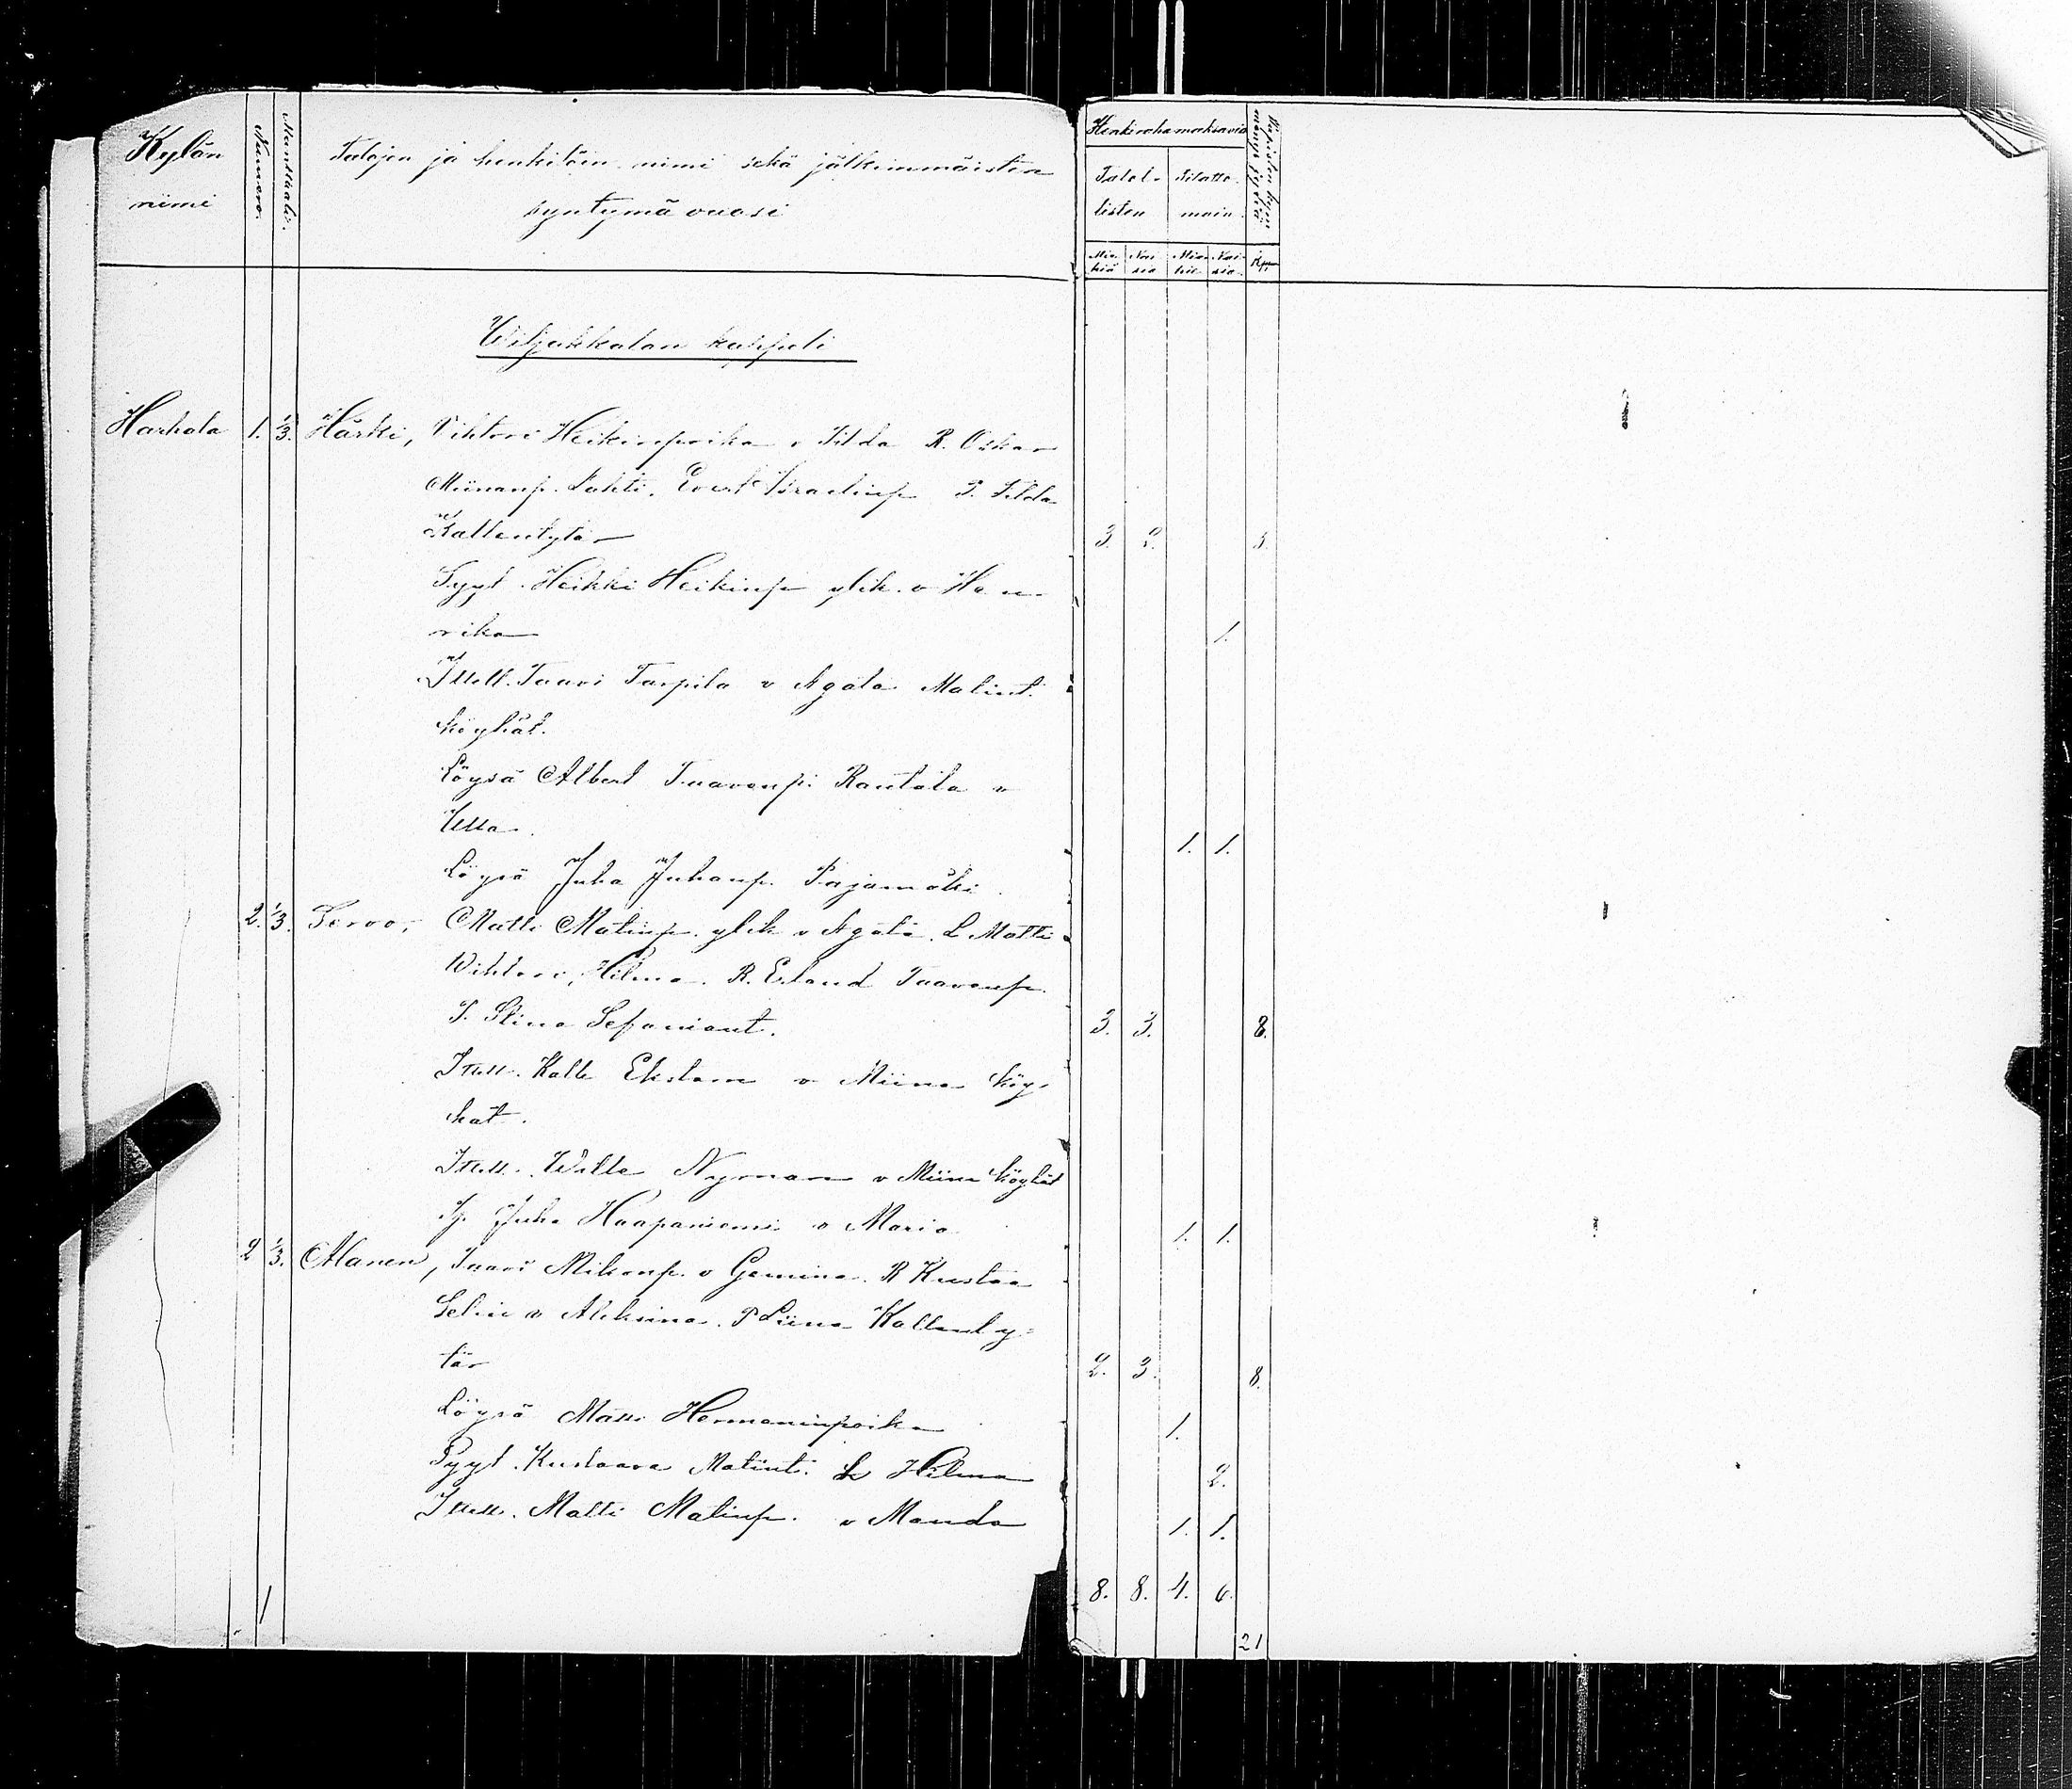 Kylän nimi
Numero.
Manttaali.
Talojen ja henkilöin nimi sekä jälkimmäisten
syntymävuosi
Henkirahamaksavia
Talol- Tilatto-
listen main
Mie- Nai- Mie- Nai- Kpl
hiä sia hiä sia
Wiljakkalan kappeli
Harhala 1. 1/3. Härki, Vihtori Heikinpoika v Tilda R. Oskar
Miinanp. Lahti, Evert Israelinp P. Tilda
Kallentytär 3. 2. 5.
Syyt. Heikki Heikinp ylik. v Hen-
rika 1.
Itsell. Taavi Tarpila v Agata Matint.
köyhät.
Löysä Albert Taavenp. Rautala v
Ulla. 1. 1.
Löysä Juha Juhanp. Pajamäki.
2. 1/3. Servo, Matti Matinp. ylik v Agata. L Matti
Wihtori, Hilma. R. Erland Taavenp.
P. Stina Sefaniant. 3. 3. 8.
Itsell. Kalle Ekstam v Miina köy-
hät.
Itsell. Wille Nyman v Miina köyhät
Juha Haapaniemi v Maria 1. 1.
2 1/3. Alanen, Taavi Mikonp. v Gemina. R Kustaa
Selin v Aleksina. P Liina Kallenty-
tär 2. 3. 8.
Löysä Matti Hermaninpoika 1.
Syyt. Kustaava Matint. L Hilma 2.
Itsell. Matti Matinp. v Manda 1. 1.
8. 8. 4. 6.
1
21